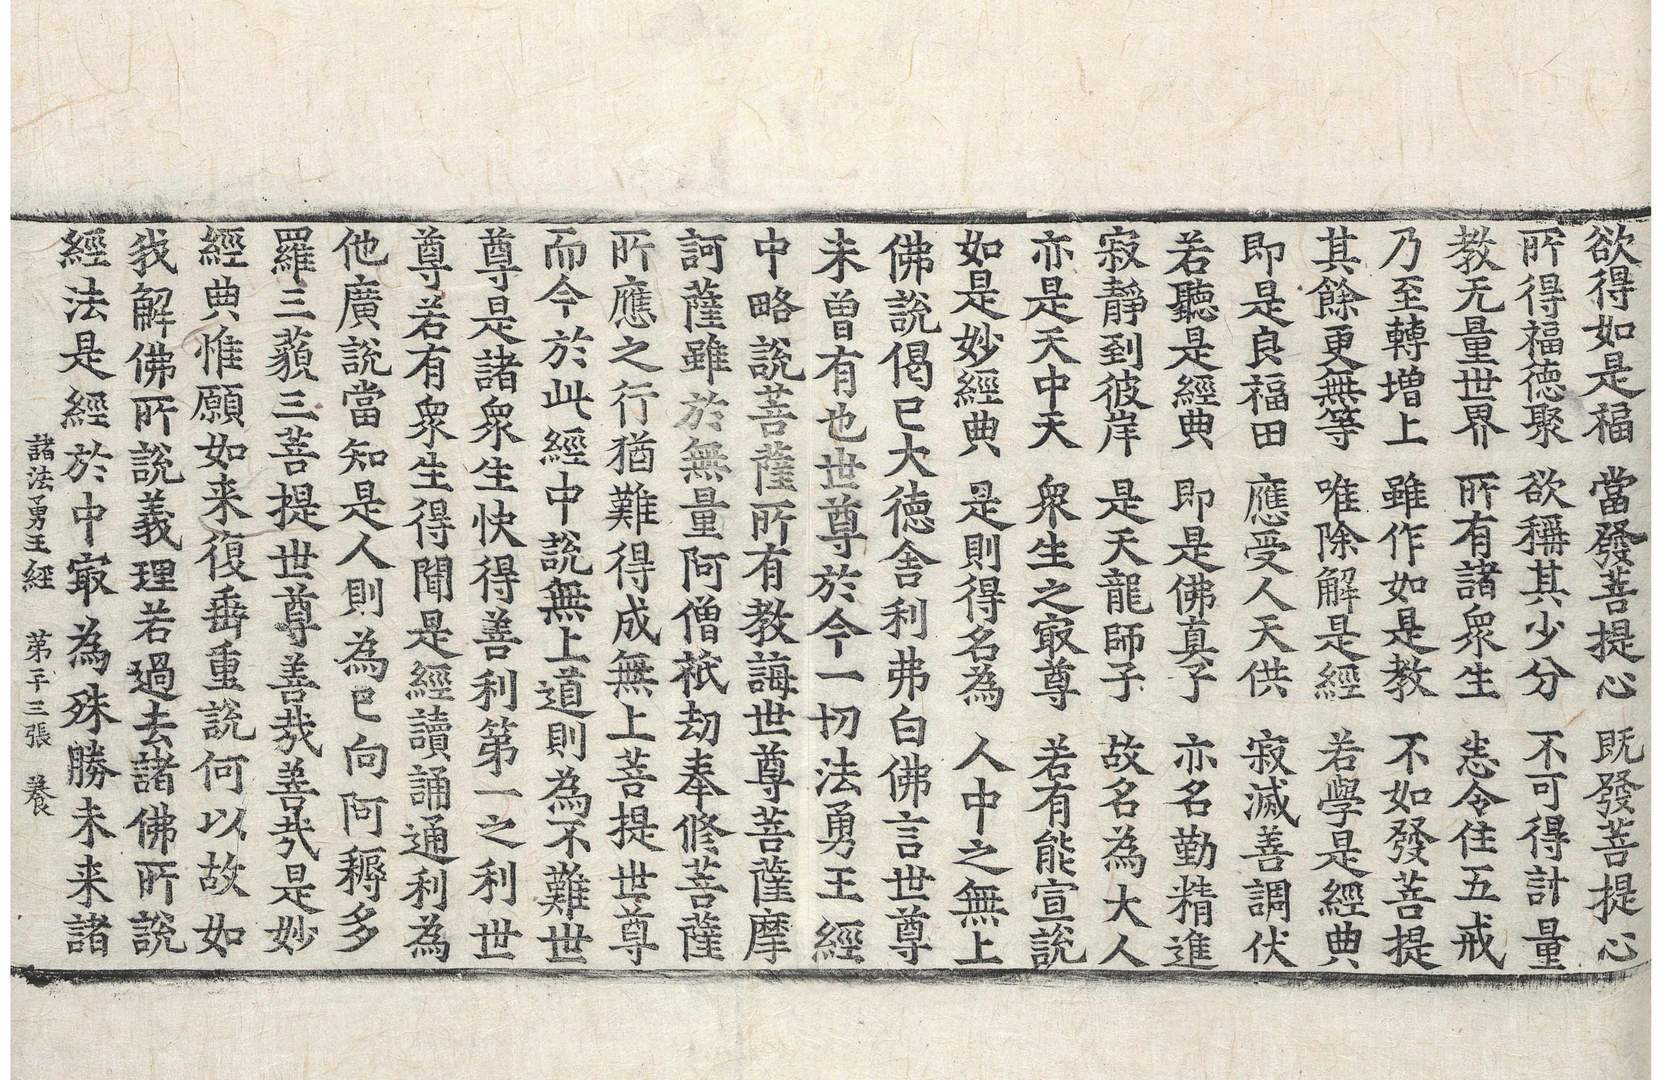 欲得如是福 當發菩提心 既發菩提心
所得福德聚 欲稱其少分 不可得計量
教无量世界 所有諸衆生 悉令住五戒
乃至轉增上 雖作如是教 不如發菩提
其餘更無等 唯除解是經 若學是經典
即是良福田 應受人天供 寂滅善調伏
若聽是經典 即是佛真子 亦名勤精進
寂靜到彼岸 是天龍師子 故名為大人
亦是天中天 衆生之㝡尊 若有能宣說
如是妙經典 是則得名為 人中之無上
佛說偈已大德舍利弗白佛言世尊
未曽有也世尊於今一切法勇王經
中略說菩薩所有教誨世尊菩薩摩
訶薩雖於無量阿僧祇劫奉修菩薩
所應之行猶難得成無上菩提世尊
而今於此經中說無上道則為不難世
尊是諸衆生快得善利第一之利世
尊若有衆生得聞是經讀誦通利為
他廣說當知是人則為已向阿耨多
羅三藐三菩提世尊善哉善哉是妙
經典惟願如来復垂重說何以故如
我解佛所說義理若過去諸佛所說
經法是經於中㝡為殊勝未来諸
諸法勇王經 第二十三張 養